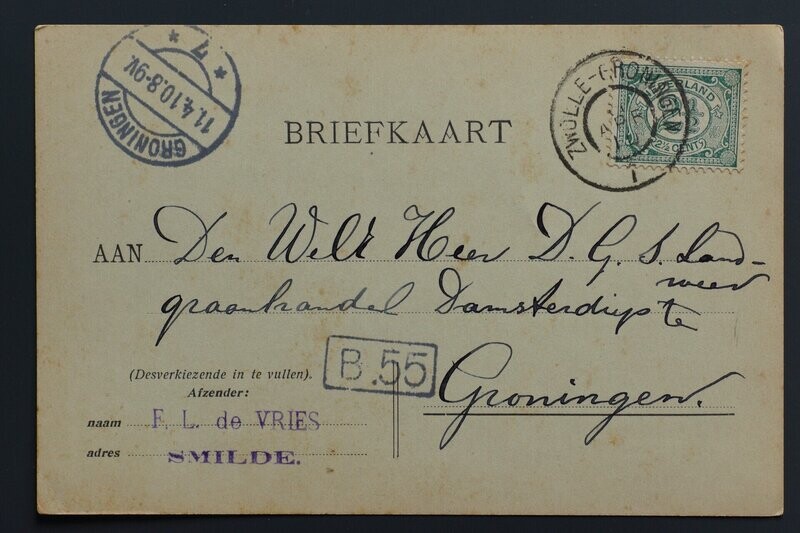 GRONINGEN
11.4.10.8-9V.
* 7 *
ZWOLLE-GRONINGEN
I
NEDERLAND
2½ CENT
BRIEFKAART
AAN Den WelE Heer D. G. S. Land-
weer
graanhandel Damsterdiep te
Groningen.
B.55
(Desverkiezende in te vullen).
Afzender:
naam F. L. de VRIES
adres SMILDE.